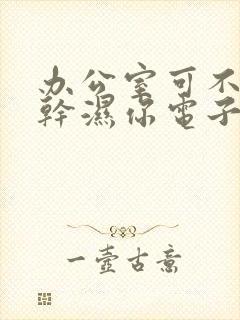 办公室可不
幹濕你電子
一壺古意